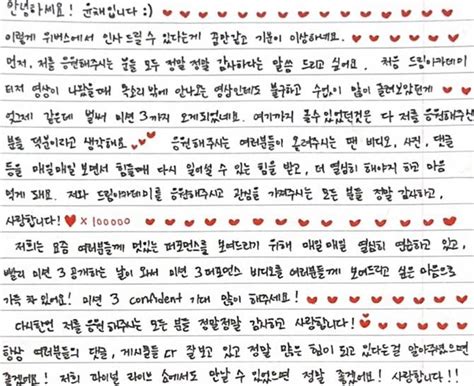 안녕하세요! 윤채입니다 :) ♥♥♥♥♥♥♥♥♥♥♥♥
이렇게 위버스에서 인사드릴 수 있다는게 꿈만같고 기분이 이상하네요. ♥♥♥
먼저, 저를 응원해주시는 분들 모두 정말 정말 감사하다는 말씀 드리고 싶어요. 처음 드림아카데미
티저 영상이 나왔을때 목소리 밖에 안나오는 영상인데도 불구하고 수없이 많이 돌려보았던게
엊그제 같은데 벌써 미션 3까지 오게되었네요. 여기까지 올수있었던것은 다 저를 응원해주신
분들 덕분이라고 생각해요 ♥♥♥ 응원해주시는 여러분들이 올려주시는 팬 비디오, 사진, 댓글
등을 매일매일 보면서 힘들때 다시 일어설 수 있는 힘을 받고, 더 열심히 해야지 하고 마음
먹게 돼요. 저와 드림아카데미를 응원해주시고 관심을 가져주시는 모든 분들 정말 감사하고,
사랑합니다! ♥ x 100000 ♥♥♥♥♥♥♥♥♥♥♥
저희는 요즘 여러분들께 멋있는 퍼포먼스를 보여드리기 위해 매일매일 열심히 연습하고 있고,
빨리 미션 3 공개하는 날이 와서 미션 3 퍼포먼스 비디오를 여러분들께 보여드리고 싶은 마음으로
가득 차 있어요! 미션 3 confident 기대 많이 해주세요! ♥♥♥♥♥♥♥
다시한번 저를 응원해주시는 모든 분들 정말정말 감사하고 사랑합니다! ♥♥♥♥♥♥
항상 여러분들의 댓글, 게시물들 다 잘보고 있고 정말 많은 힘이 되고 있다는걸 알아주셨으면
좋겠어요! 저희 파이널 라이브 쇼에서도 만날 수 있었으면 정말 좋겠어요! 사랑합니다!!